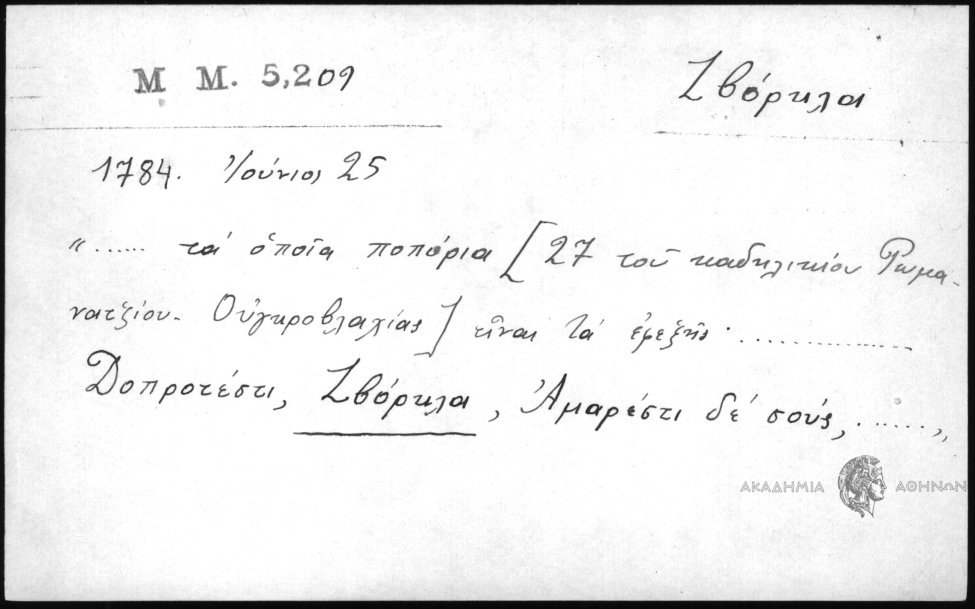 Μ Μ. 5,209
Σβόρκλα
1784. Ἰούνιος 25
"...... τά ὁποῖα ποπόρια [27 τοῦ καδηλικίου Ρωμα-
νατζίου- Οὑγκροβλαχίας] εἶναι τά ἐφεξῆς· ................
Δοπροτέστι, Σβόρκλα, Ἀμαρέστι δέ σούς, ......"
ΑΚΑΔΗΜΙΑ ΑΘΗΝΩΝ